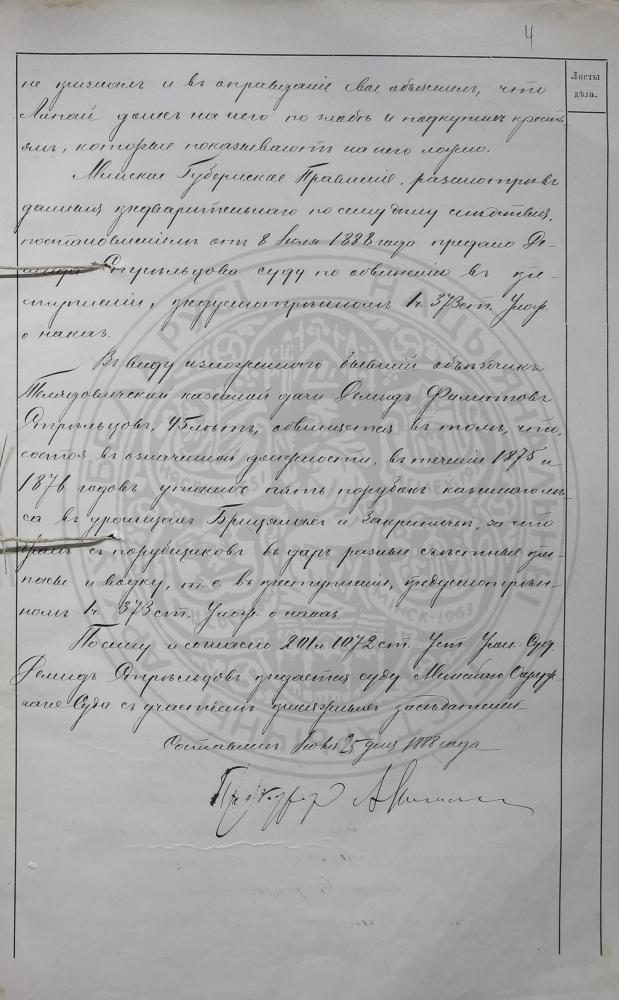 4
Листы
дѣла.
не призналъ и въ оправданіе свое объяснилъ, что
Липай донесъ на него по злобѣ и подкупилъ кресть-
янъ, которые показываютъ на него ложно.
Минское Губернское Правленіе, разсмотрѣвъ
данныя предварительнаго по сему дѣлу слѣдствія,
постановленіемъ отъ 8 Іюля 1888 года предало Де-
мида Стрѣльцова суду по обвиненію въ пре-
ступленіи, предусмотрѣнномъ 1 ч. 373 ст. Улож.
о наказ.
Въ виду изложеннаго бывшій объѣздчикъ
казенной дачи Демидъ Филиповъ
Стрѣльцовъ, 45 лѣтъ, обвиняется въ томъ, что,
состоя въ означенной должности, въ теченіи 1875 и
1876 годовъ утаилъ пять порубокъ казеннаго лѣ-
са въ урочищахъ и за что
бралъ съ порубщиковъ въ даръ разные съѣстные при-
пасы и водку, т. е. въ преступленіи, предусмотрѣн-
номъ 1 ч. 373 ст. Улож. о наказ.
По сему и согласно 201 и 1072 ст. Уст. Угол. Суд.
Демидъ Стрѣльцовъ предается суду Минскаго Окруж-
наго Суда съ участіемъ присяжныхъ засѣдателей.
Составленъ Іюля 25 дня 1888 года
Прокуроръ